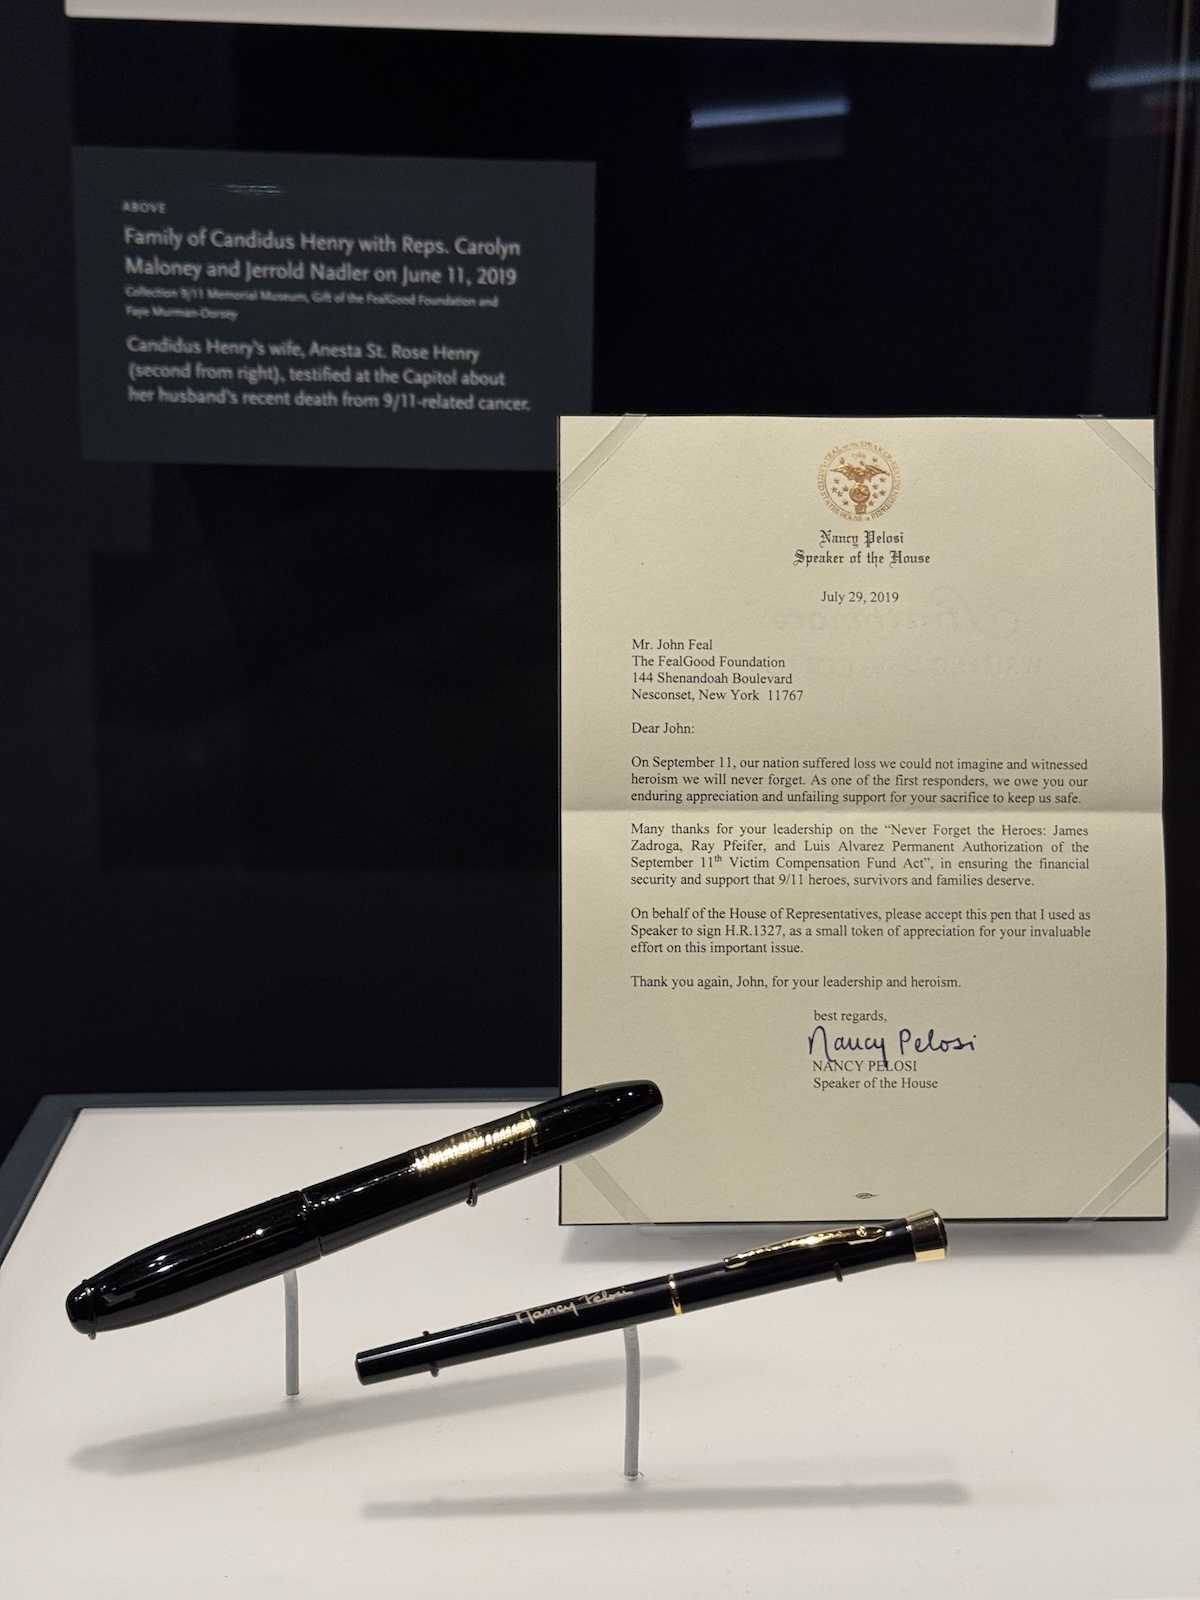 ABOVE
Family of Candidus Henry with Reps. Carolyn
Maloney and Jerrold Nadler on June 11, 2019
Collection 9/11 Memorial Museum, Gift of the FealGood Foundation and
Faye Murman-Dorsey
Candidus Henry's wife, Anesta St. Rose Henry
(second from right), testified at the Capitol about
her husband's recent death from 9/11-related cancer.
Nancy Pelosi
Speaker of the House
July 29, 2019
Mr. John Feal
The FealGood Foundation
144 Shenandoah Boulevard
Nesconset, New York 11767
Dear John:
On September 11, our nation suffered loss we could not imagine and witnessed
heroism we will never forget. As one of the first responders, we owe you our
enduring appreciation and unfailing support for your sacrifice to keep us safe.
Many thanks for your leadership on the “Never Forget the Heroes: James
Zadroga, Ray Pfeifer, and Luis Alvarez Permanent Authorization of the
September 11th Victim Compensation Fund Act”, in ensuring the financial
security and support that 9/11 heroes, survivors and families deserve.
On behalf of the House of Representatives, please accept this pen that I used as
Speaker to sign H.R.1327, as a small token of appreciation for your invaluable
effort on this important issue.
Thank you again, John, for your leadership and heroism.
best regards,
Nancy Pelosi
NANCY PELOSI
Speaker of the House
Nancy Pelosi